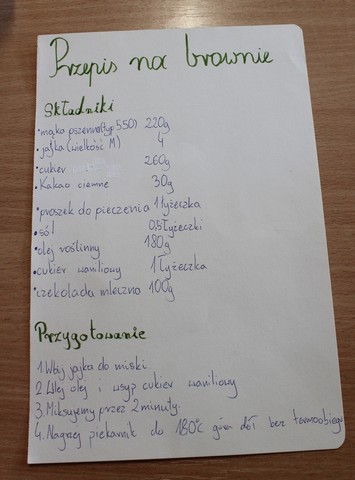 Przepis na brownie
Składniki
• mąka pszenna (typ 550) 220g
• jajka (wielkość M) 4
• cukier 260g
• Kakao ciemne 30g
• proszek do pieczenia 1 łyżeczka
• sól 0,5 łyżeczki
• olej roślinny 180g
• cukier waniliowy 1 łyżeczka
• czekolada mleczna 100g
Przygotowanie
1. Wbij jajka do miski.
2. Wlej olej i wsyp cukier waniliowy
3. Miksujemy przez 2 minuty.
4. Nagrzej piekarnik do 180°C góra dół bez termoobiegu